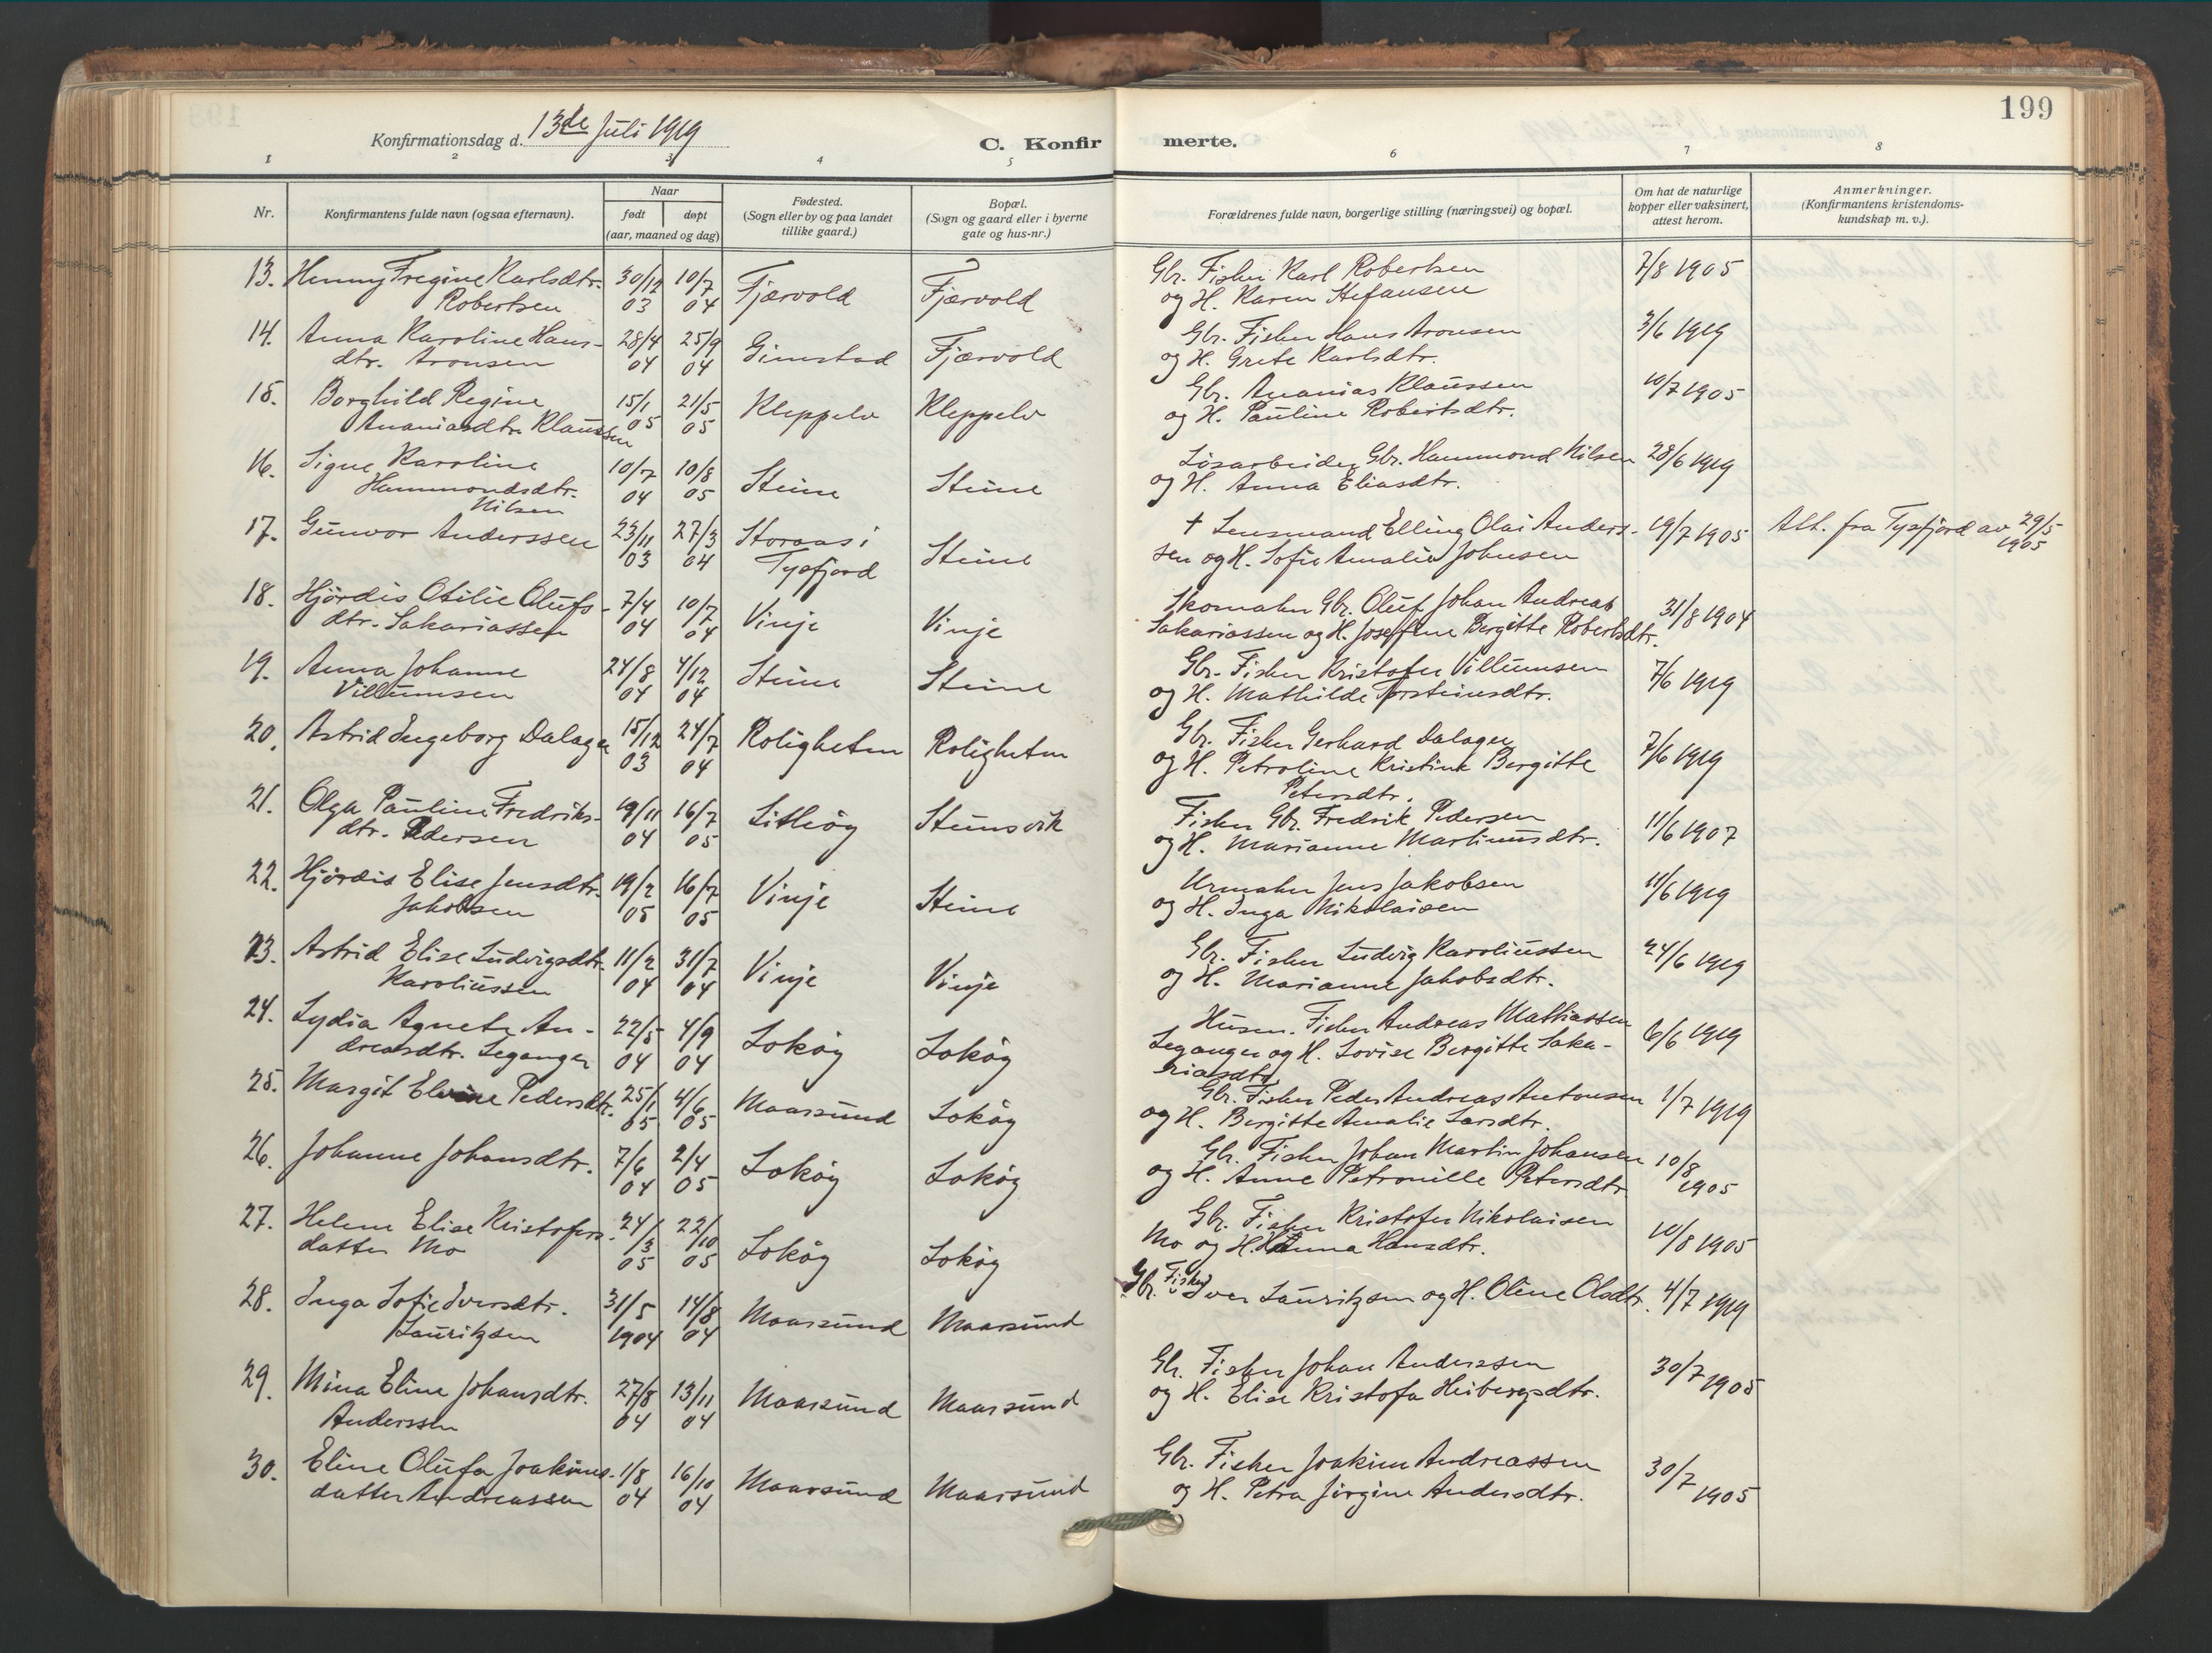 199
Konfirmationsdag d. 13de Juli 1919
C. Konfirmerte.
1 2 3 4 5 6 7 8
Nr.
Konfirmantens fulde navn (ogsaa efternavn).
Naar
født døpt
(aar, maaned og dag)
Fødested.
(Sogn eller by og paa landet
tillike gaard.)
Bopæl.
(Sogn og gaard eller i byerne
gate og hus-nr.)
Forældrenes fulde navn, borgerlige stilling (næringsvei) og bopæl.
Om hat de naturlige
kopper eller vaksinert,
attest herom.
Anmerkninger.
(Konfirmantens kristendoms-
kundskap m. v.).
13. Henny Fregine Karlsdtr. 30/12 10/7 Fjærvold Fjærvold Gbr. Fisker Karl Robertsen 7/8 1905
Robertsen 03 04 og H. Karen Stefansen
14. Anna Karoline Hans- 28/4 25/9 Gimstad Fjærvold Gbr. Fisker Hans Aronsen 3/6 1919
dtr. Aronsen 04 04 og H. Grete Karlsdtr.
15. Borghild Regine 15/1 21/5 Kleppelv Kleppelv Gbr. Ananias Klaussen 10/7 1905
Ananiasdtr. Klaussen 05 05 og H. Pauline Robertsdtr.
16. Signe Karoline 10/7 10/8 Steine Steine Løsarbeider Gbr. Hammond Nilsen 28/6 1919
Hammondsdtr. 04 05 og H. Anna Eliasdtr.
Nilsen
17. Gunvor Anderssen 23/11 27/3 Storaas i Steine † Lensmand Elling Olai Anders- 19/7 1905 Att. fra Tysfjord av 29/5
03 04 Tysfjord sen og H. Sofie Amalie Johnsen 1905
18. Hjördis Otilie Olufs- 7/4 10/7 Vinje Vinje Skomaker Gbr. Oluf Johan Andreas 31/8 1904
dtr. Sakariassen 04 04 Sakariassen og H. Josefine Bergitte Robertsdtr.
19. Anna Johanne 24/8 4/12 Steine Steine Gbr. Fisker Kristofer Villumsen 7/6 1919
Villumsen 04 04 og H. Mathilde Torsteinsdtr.
20. Astrid Ingeborg Dalager 15/12 24/7 Roligheten Roligheten Gbr. Fisker Gerhard Dalager 7/6 1919
03 04 og H. Petroline Kristine Bergitte
Petersdtr.
21. Olga Pauline Fredriks- 19/11 16/7 Litleöy Steinsvik Fisker Gbr. Fredrik Pedersen 11/6 1907
dtr. Pedersen 04 05 og H. Marianne Martinusdtr.
22. Hjördis Elise Jensdtr. 19/2 16/7 Vinje Steine Urmaker Jens Jakobsen 11/6 1919
Jakobsen 05 05 og H. Inga Nikolaisen
23. Astrid Elise Ludvigsdtr. 11/2 31/7 Vinje Vinje Gbr. Fisker Ludvig Karoliussen 24/6 1919
Karoliussen 04 04 og H. Marianne Jakobsdtr.
24. Lydia Agnete An- 22/5 4/9 Lokøy Lokøy Husm. Fisker Andreas Mathiassen 6/6 1919
dreasdtr. Leganger 04 04 Leganger og H. Lovise Bergitte Saka-
riasdtr.
25. Margit Elvine Pedersdtr. 25/1 4/6 Maarsund Lokøy Gbr. Fisker Peder Andreas Antonsen 1/7 1919
05 05 og H. Bergitte Amalie Larsdtr.
26. Johanne Johansdtr. 7/6 2/4 Lokøy Lokøy Gbr. Fisker Johan Martin Johansen 10/8
04 05 og H. Anne Petronille Petersdtr. 1905
27. Helene Elise Kristofers- 24/3 22/10 Lokøy Lokøy Gbr. Fisker Kristofer Nikolaisen 10/8 1905
datter Mo 05 05 Mo og H. Hanna Hansdtr.
28. Inga Sofie Iversdtr. 31/5 14/8 Maarsund Maarsund Gbr. Fisker Iver Lauritzsen og H. Oline Olsdtr. 4/7 1919
Lauritzsen 1904 04
29. Mina Eline Johansdtr. 27/8 13/11 Maarsund Maarsund Gbr. Fisker Johan Anderssen 30/7 1905
Anderssen 04 04 og H. Elise Kristofa Heibergsdtr.
30. Eline Olufa Joakims- 1/8 16/10 Maarsund Maarsund Gbr. Fisker Joakim Andreassen 30/7
datter Andreassen 04 04 og H. Petra Jørgine Andersdtr. 1905